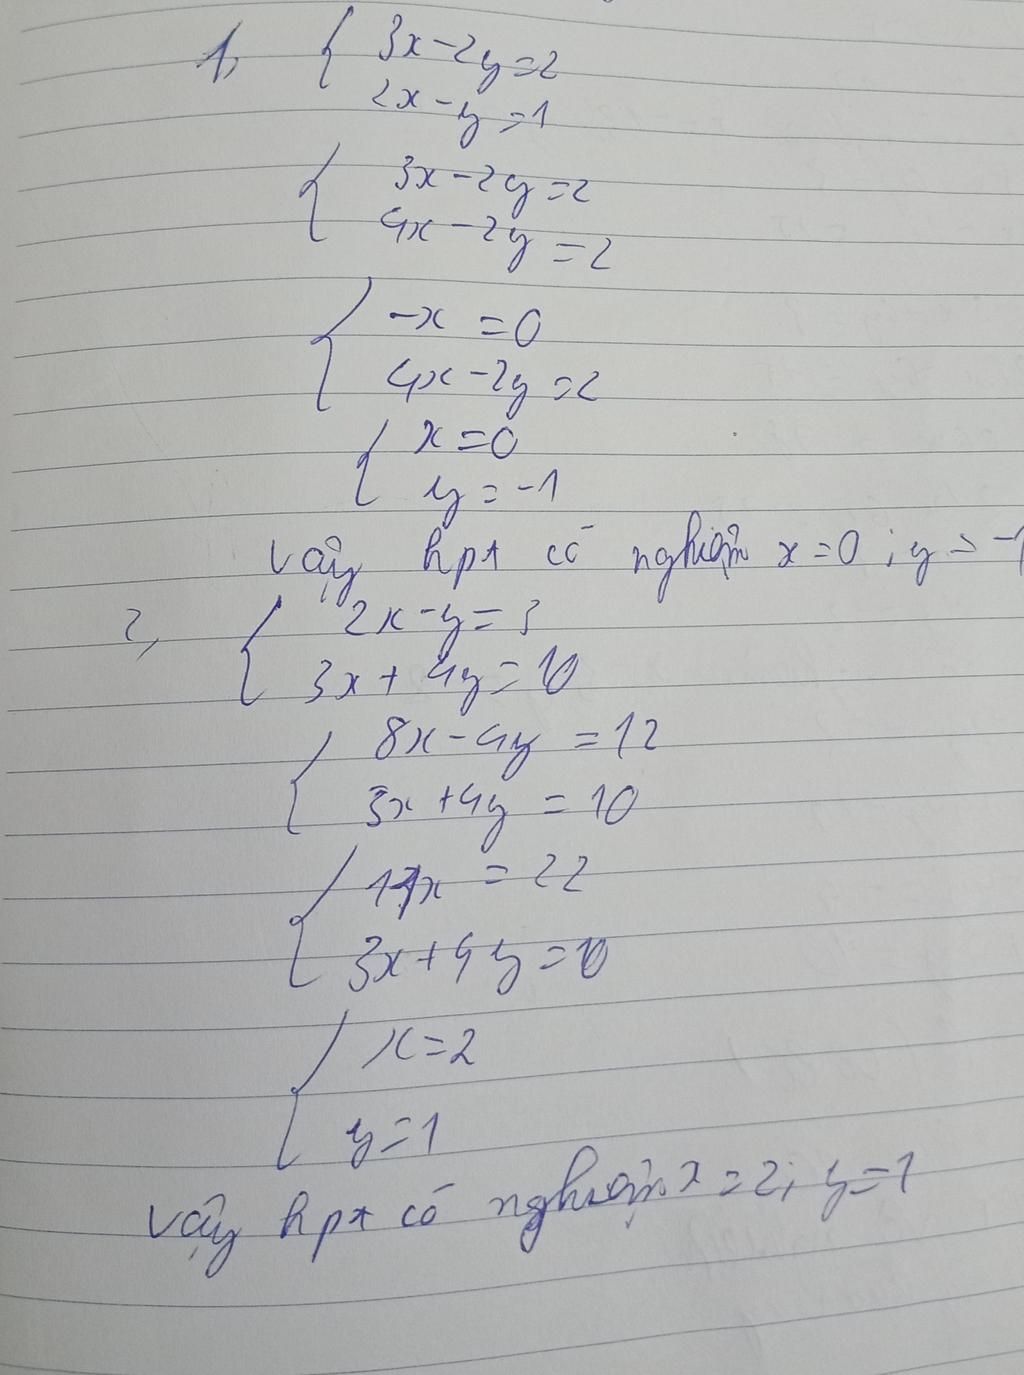 1, { 3x-2y=2
2x-y=1
{ 3x-2y=2
4x-2y=2
{ -x=0
4x-2y=2
{ x=0
y=-1
Vậy hpt có nghiệm x=0; y=-1
2, { 2x-y=3
3x+4y=10
{ 8x-4y=12
3x+4y=10
{ 11x=22
3x+4y=10
{ x=2
y=1
Vậy hpt có nghiệm x=2; y=1